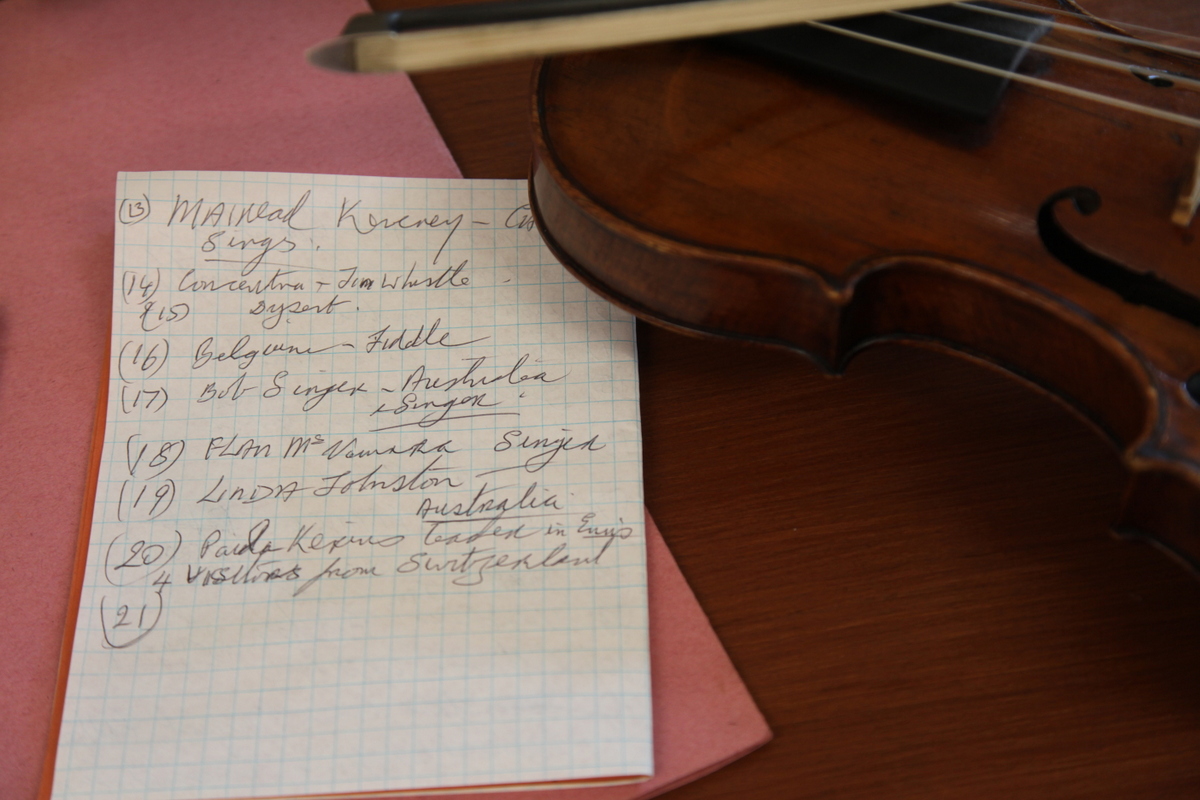 (13) MAIREAD Kerneney -
Sings.
(14) Concertina + Tin Whistle
(15) Dysert.
(16) Belguim - Fiddle
(17) Bob Singer - Australia
Singer.
(18) FLAN Mc Namara Singer
(19) LINDA Johnston
Australia
(20) Teacher in Ennis
4 Visitors from Switzerland
(21)